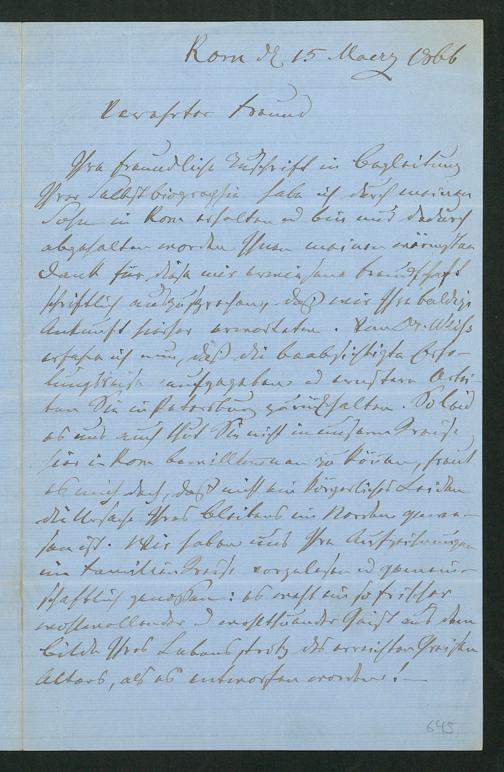 Rom d. 15 Maerz 1866
Verehrter Freund
Ihre freundliche Zuschrift in Begleitung
Ihrer Selbstbiographie habe ich durch meinen
Sohn in Rom erhalten u bin nur dadurch
abgehalten worden Ihnen meinen wärmsten
Dank für diese mir erwiesene Freundschaft
schriftlich auszusprechen, daß wir Ihre baldige
Ankunft hierher erwarteten. Von Dr. Weiss
erfahre ich nun, daß die beabsichtigte Erho-
lungsreise aufgegeben u ernstere Arbei-
ten Sie in Petersburg zurückhalten. So leid
es uns auch thut Sie nicht in unserm Kreise
hier in Rom bewillkomnen zu können, freut
es mich doch, daß nicht ein körperliches Leiden
die Ursache Ihres Bleibens im Norden gewe-
sen ist. Wir haben uns Ihre Aufzeichnungen
im Familien Kreise vorgelesen u gemein-
schaftlich genossen: es weht ein so frischer
wohlwollender u wohlthuender Geist aus dem
Bilde Ihres Lebens, trotz des erreichten Greisen
Alters, als es entworfen worden! —
645